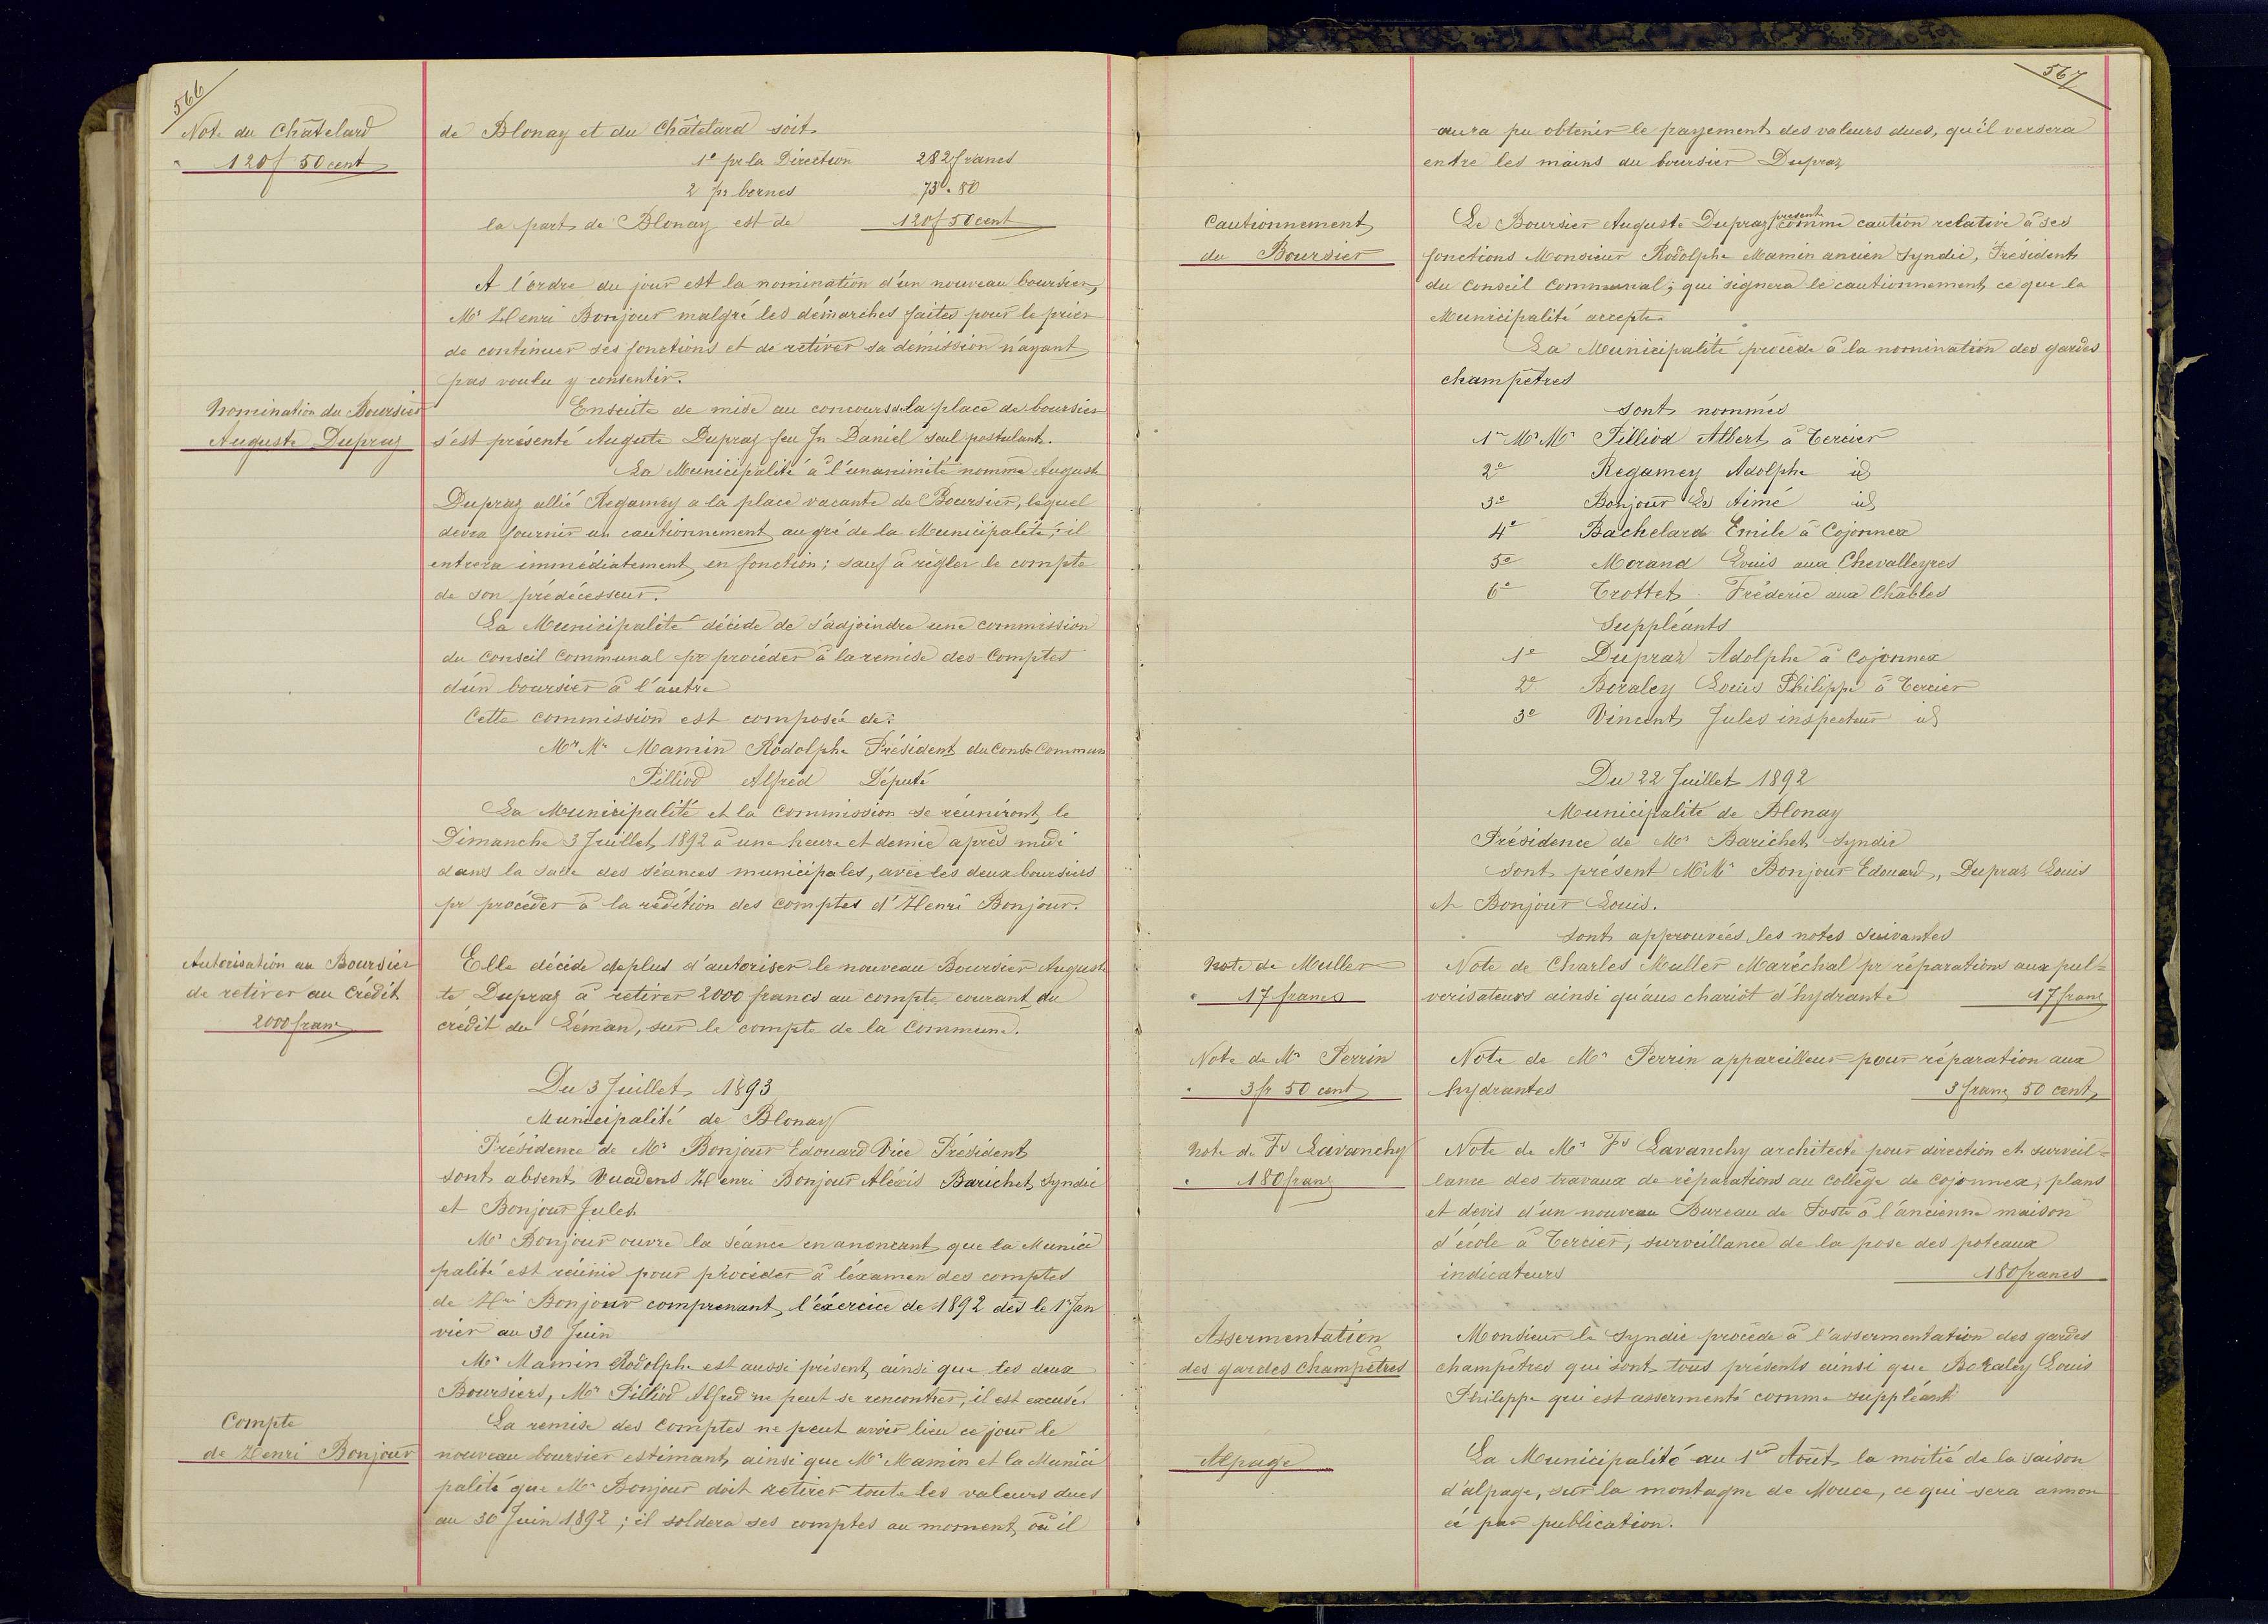 566
Note du Châtelard
" 120f 50 cent
de Blonay et du Châtelard soit
1° pr la Direction 282 francs
2 pr bornes 73 " 80
la part de Blonay est de 120f 50 cent
A l'ordre du jour est la nomination d'un nouveau boursier,
Mr Henri Bonjour malgré les démarches faites pour le prier
de continuer ses fonctions et de retirer sa démission n'ayant
pas voulu y consentir.
Nomination du Boursier
Auguste Dupraz
Ensuite de mise au concours de la place de boursier
s'est présenté Auguste Dupraz feu Jn Daniel seul postulant.
La Municipalité à l'unanimité nomme Auguste
Dupraz allié Regamey a la place vacante de Boursier, lequel
devra fournir un cautionnement au gré de la Municipalité; il
entrera immédiatement en fonction; sauf à régler le compte
de son prédécesseur.
La Municipalité décide de s'adjoindre une commission
du Conseil Communal pr procéder à la remise des Comptes
d'un boursier à l'autre
Cette commission est composée de:
Mr Mr Mamin Rodolphe Président du Cons Commun
Pilliod Alfred Député
La Municipalité et la Commission se réuniront le
Dimanche 3 Juillet 1892 à une heure et demie après midi
dans la salle des séances municipales, avec les deux boursiers
pr procéder à la rédition des comptes d'Henri Bonjour.
Autorisation au Boursier
de retirer au Crédit
2000 franc
Elle décide de plus d'autoriser le nouveau Boursier Augus
te Dupraz à retirer 2000 francs au compte courant du
crédit du Léman, sur le compte de la Commune.
Du 3 Juillet 1893
Municipalité de Blonay
Présidence de Mr Bonjour Edouard Vice Président
sont absent Vuadens Henri Bonjour Aléxis Barichet Syndic
et Bonjour Jules
Mr Bonjour ouvre la séance en anoncant que la Munici
palité est réunie pour procéder à l'éxamen des comptes
de Hri Bonjour comprenant l'éxercice de 1892 dès le 1r Jan
vier au 30 Juin
Mr Mamin Rodolphe est aussi présent ainsi que les deux
Boursiers, Mr Pilliod Alfred ne peut se rencontrer, il est excusé.
Compte
de Henri Bonjour
La remise des Comptes ne peut avoir lieu ce jour le
nouveau boursier estimant ainsi que Mr Mamin et la Munici
palité que Mr Bonjour doit retirer toute les valeurs dues
au 30 Juin 1892; il soldera ses comptes au moment où il
567
aura pu obtenir le payement des valeurs dues, qu'il versera
entre les mains du boursier Dupraz
Cautionnement
du Boursier
Le Boursier Auguste Dupraz présent comme caution relative à ses
fonctions Monsieur Rodolphe Mamin ancien Syndic, Président
du Conseil Communal; qui signera le cautionnement ce que la
Municipalité accepte.
La Municipalité procède à la nomination des gardes
champêtres
Sont nommés
1r Mr Mr Pilliod Albert à Tercier
2e Regamey Adolphe id
3e Bonjour Ls Aimé id
4e Bachelard Emile à Cojonnex
5e Morand Louis aux Chevalleyres
6e Trottet Fréderic aux Châbles
Suppléants
1e Dupraz Adolphe à Cojonnex
2e Béraley Louis Philippe à Tercier
3e Vincent Jules inspecteur id
Du 22 Juillet 1892
Municipalité de Blonay
Présidence de Mr Barichet Syndic
Sont présent Mr Mr Bonjour Edouard, Dupraz Louis
et Bonjour Louis.
Sont approuvées les notes suivantes
Note de Muller
" 17 francs
Note de Charles Muller Maréchal pr réparations aux pul=
verisateurs ainsi qu'aux chariot d'hydrante 17 franc
Note de Mr Perrin
" 3 fr 50 cent
Note de Mr Perrin appareilleur pour réparation aux
hydrantes 3 franc 50 cent
Note de Fs Lavanchy
" 180 franc
Note de Mr Fs Lavanchy architecte pour direction et surveil=
lance des travaux de réparations au collège de Cojonnex, plans
et devis d'un nouveau Bureau de Poste à l'ancienne maison
d'école à Tercier, surveillance de la pose des poteaux
indicateurs 180 francs
Assermentation
des gardes champêtres
Monsieur le Syndic procède à l'assermentation des gardes
champêtres qui sont tous présents ainsi que Béraley Louis
Philippe qui est assermenté comme suppléant
Alpage
La Municipalité au 1er Août la moitié de la saison
d'alpage, sur la montagne de Mouce, ce qui sera annon
cé par publication.